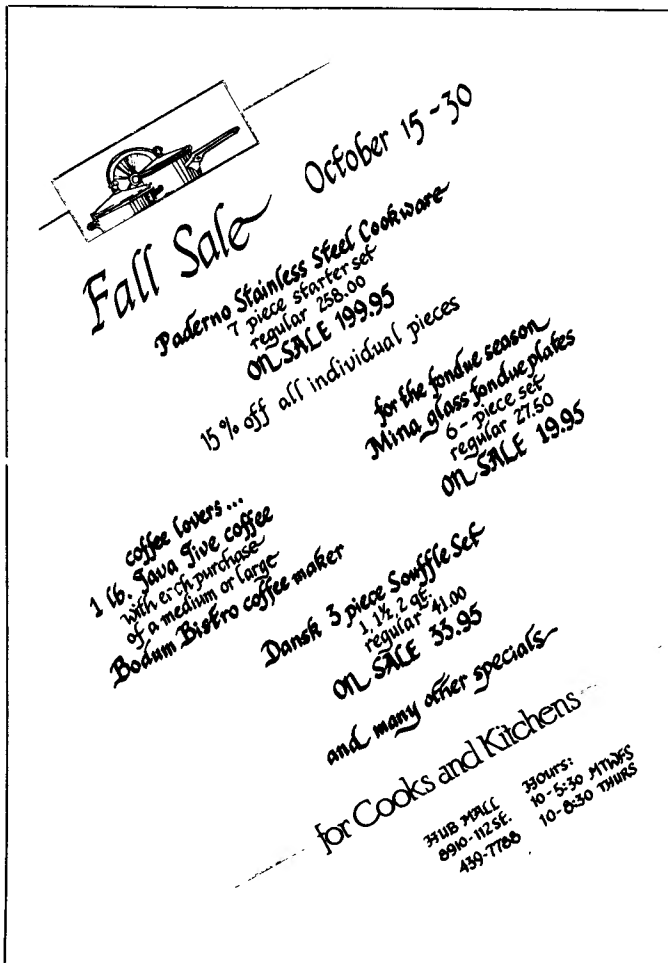 Fall Sale October 15-30
Paderno Stainless Steel Cookware
7 piece starter set
regular 258.00
ON SALE 199.95
15% off all individual pieces
for the fondue season
Mina glass fondue plates
6-piece set
regular 27.50
ON SALE 19.95
coffee lovers...
1 lb. Java Jive coffee
with each purchase
of a medium or large
Bodum Bistro coffee maker
Dansk 3 piece Souffle Set
1, 1½, 2 qt.
regular 41.00
ON SALE 33.95
and many other specials
for Cooks and Kitchens
HUB MALL
8910-112 St.
439-7788
Hours:
10-5:30 MTWFS
10-8:30 THURS